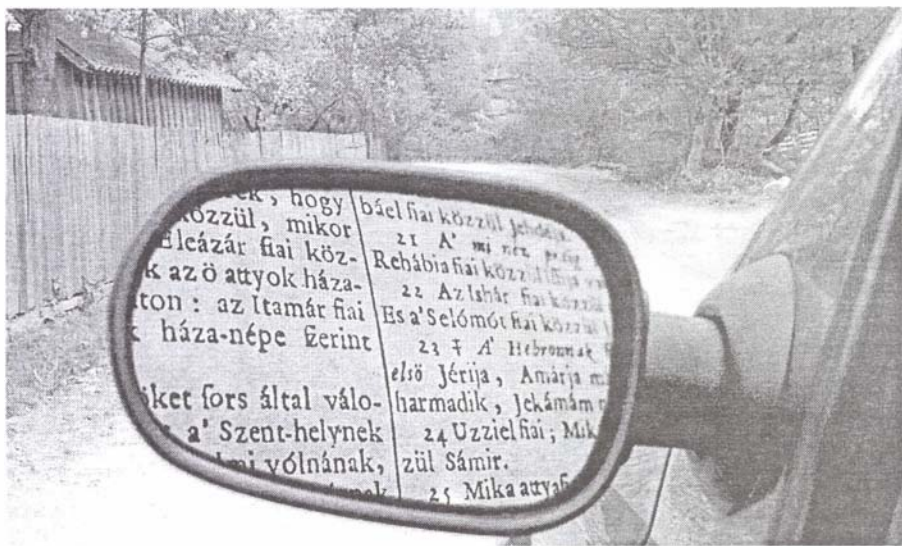 hogy
közzül, mikor
Eleázár fiai köz-
az ö attyok háza-
az Itamár fiai
háza-népe ſzerint
fors által válo-
a' Szent-helynek
vólnának,
báel fiai közzül
21 A' mi
Rehábia fiai közzül
22 Az Ishár fiai közzül
Es a' Selómót fiai közzül
23 ‡ A' Hebronnak
elsö Jérija, Amárja
harmadik, Jekámám
24 Uzziel fiai;
zül Sámir.
25 Mika